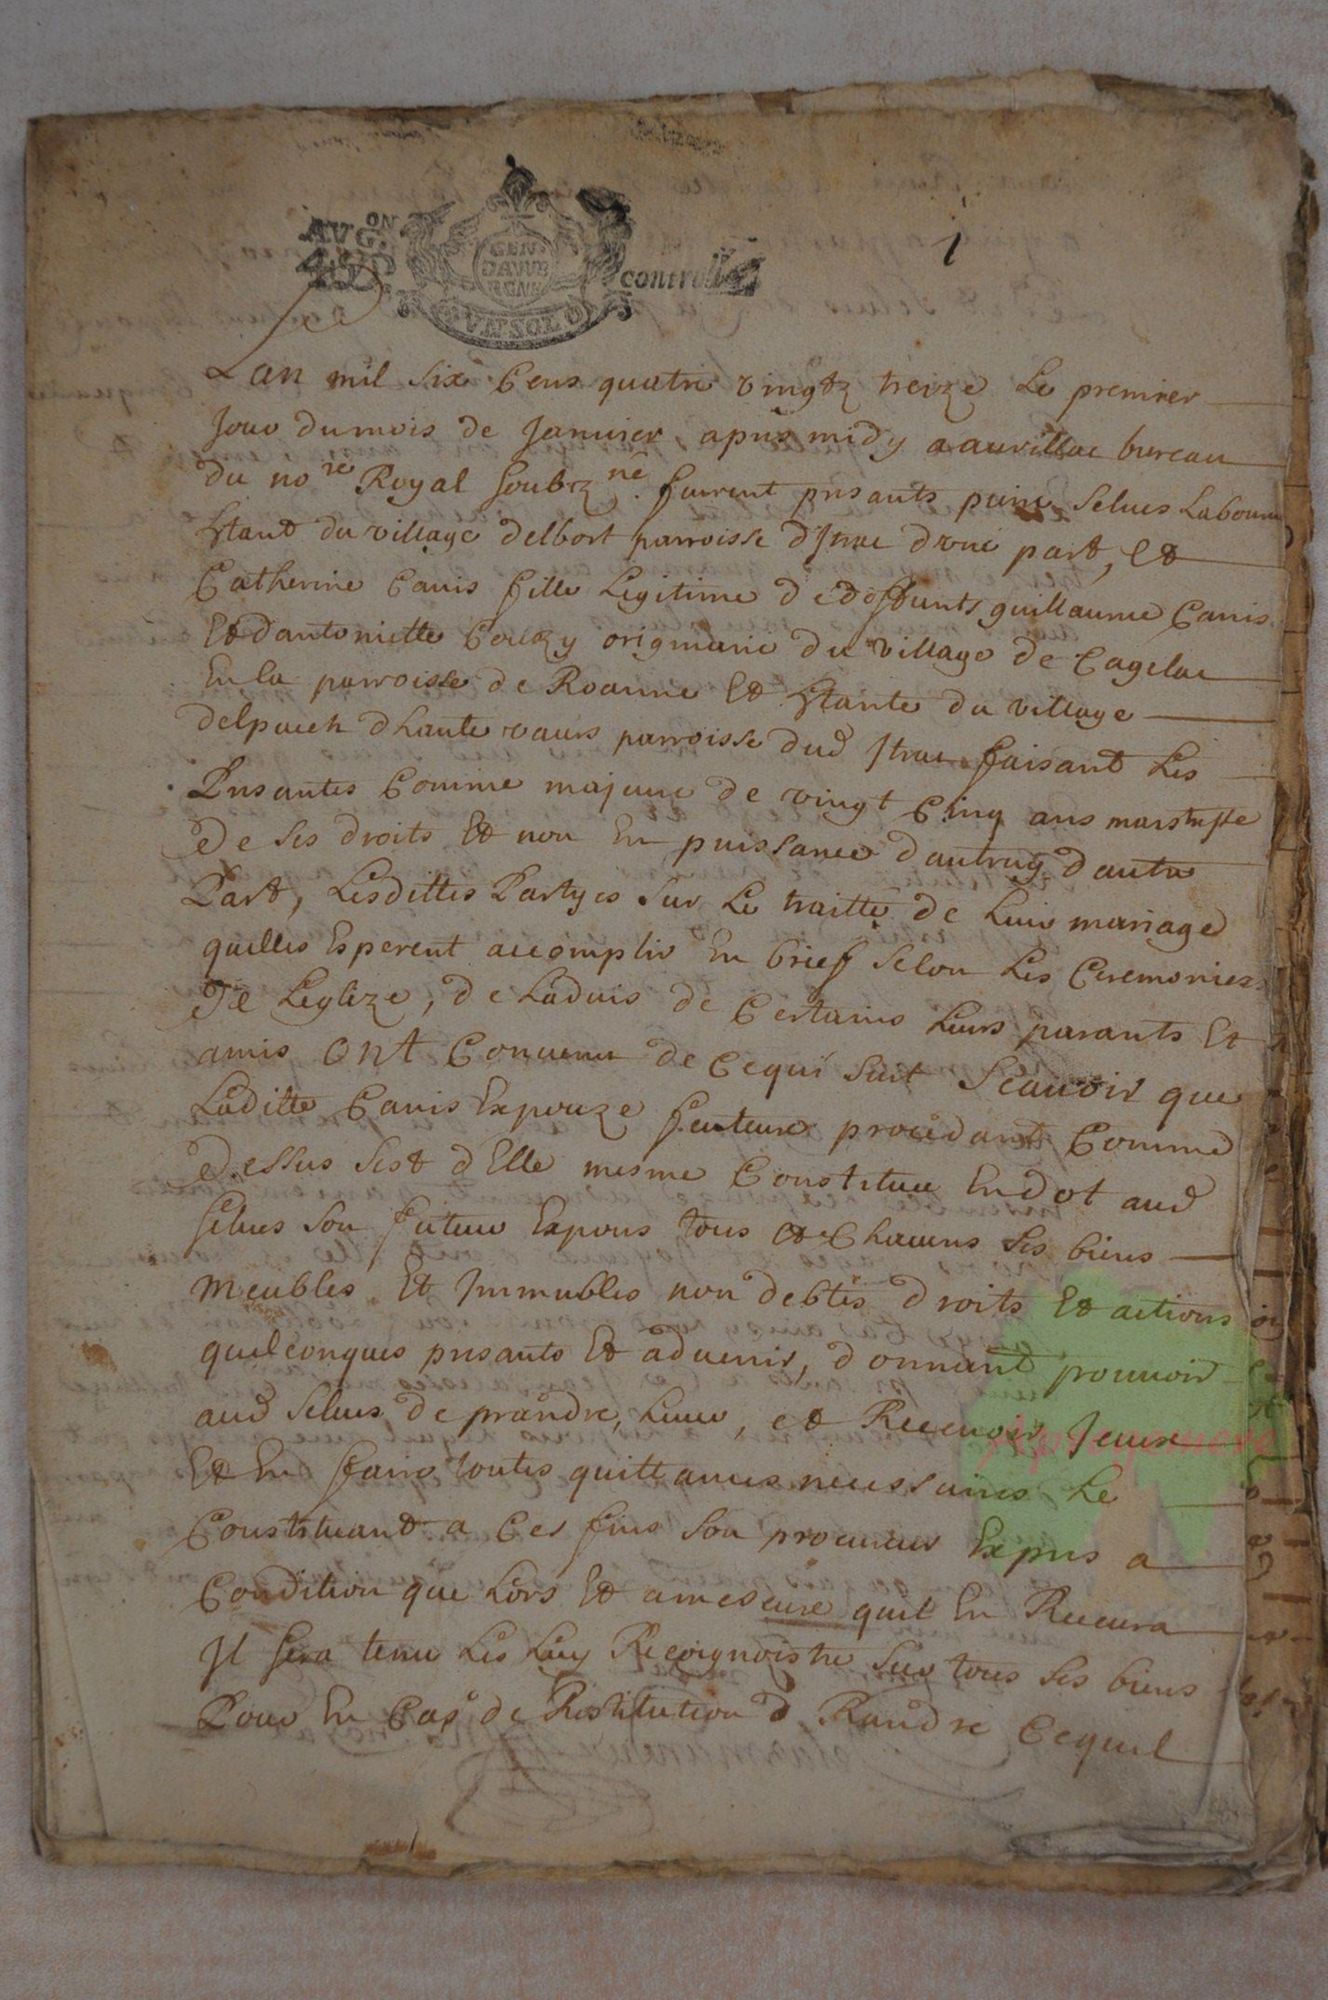 1
AVG.ON
GEN. DAVVERGNE
VN SOL
controllé
Lan mil six cens quatre vingtz treize le premier
Jour du mois de Januier, apres midy a aurillac bureau
du nore Royal soubzné furent pnsants Selues Laboureur
htant du village delbort parroisse dJtrac dune part, et
Catherine Canis fille legitime de deffunts guillaume Canis
Et dantoniette originaire du village de Cagelac
En la parroisse de Roanne Et htante du village
delpuech dhaute vaurs parroisse dud Jtrac faisant les
Pnsantes Comme majeure de vingt Cinq ans maistresse
De ses droits Et non En puissance dautruy dautre
Part, Lesdittes Partyes sur le traitté de leur mariage
quelles Esperent accomplir En brief selon les Ceremonies
de Leglize, de Laduis de Certains leurs parants Et
amis ont Conuenu de Cequi suit Scauoir que
Laditte Canis Expouze futeure procedant Comme
Dessus sest delle mesme Constitue En dot aud
Selues son futeur Expous tous Et Chacuns ses biens
meubles Et Immubles nom debtes droits Et actions
quelconques pnsants Et aduenir, donnant pouuoir
aud Selues de prandre, leuer, et Receuoir Jceux
Et En faire toutes quittances necessaires le
Constituant a Ces fins son procureur Expres a
Condition que lors Et amesure quil En Receura
Jl sera tenu les luy Recoignoistre sur tous ses biens
Pour En Cas de Restitution Randre Cequil